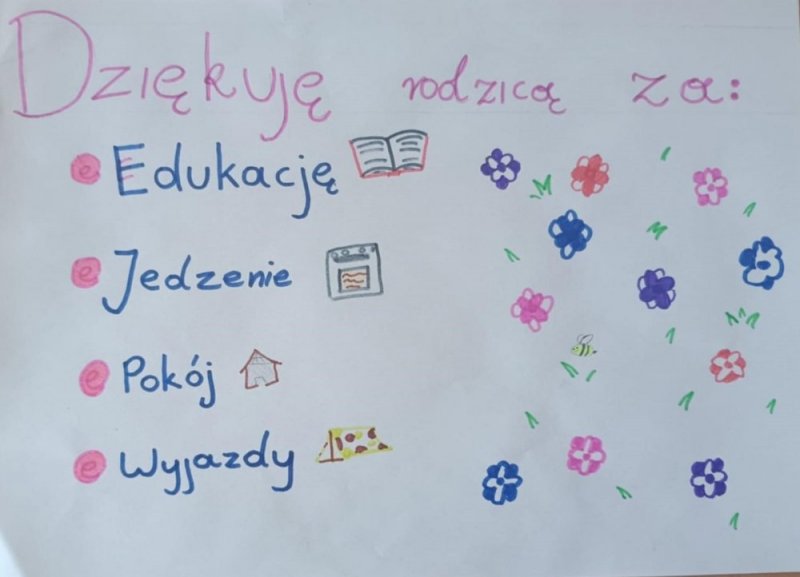 Dziękuję rodzicą za:
Edukację
Jedzenie
Pokój
Wyjazdy